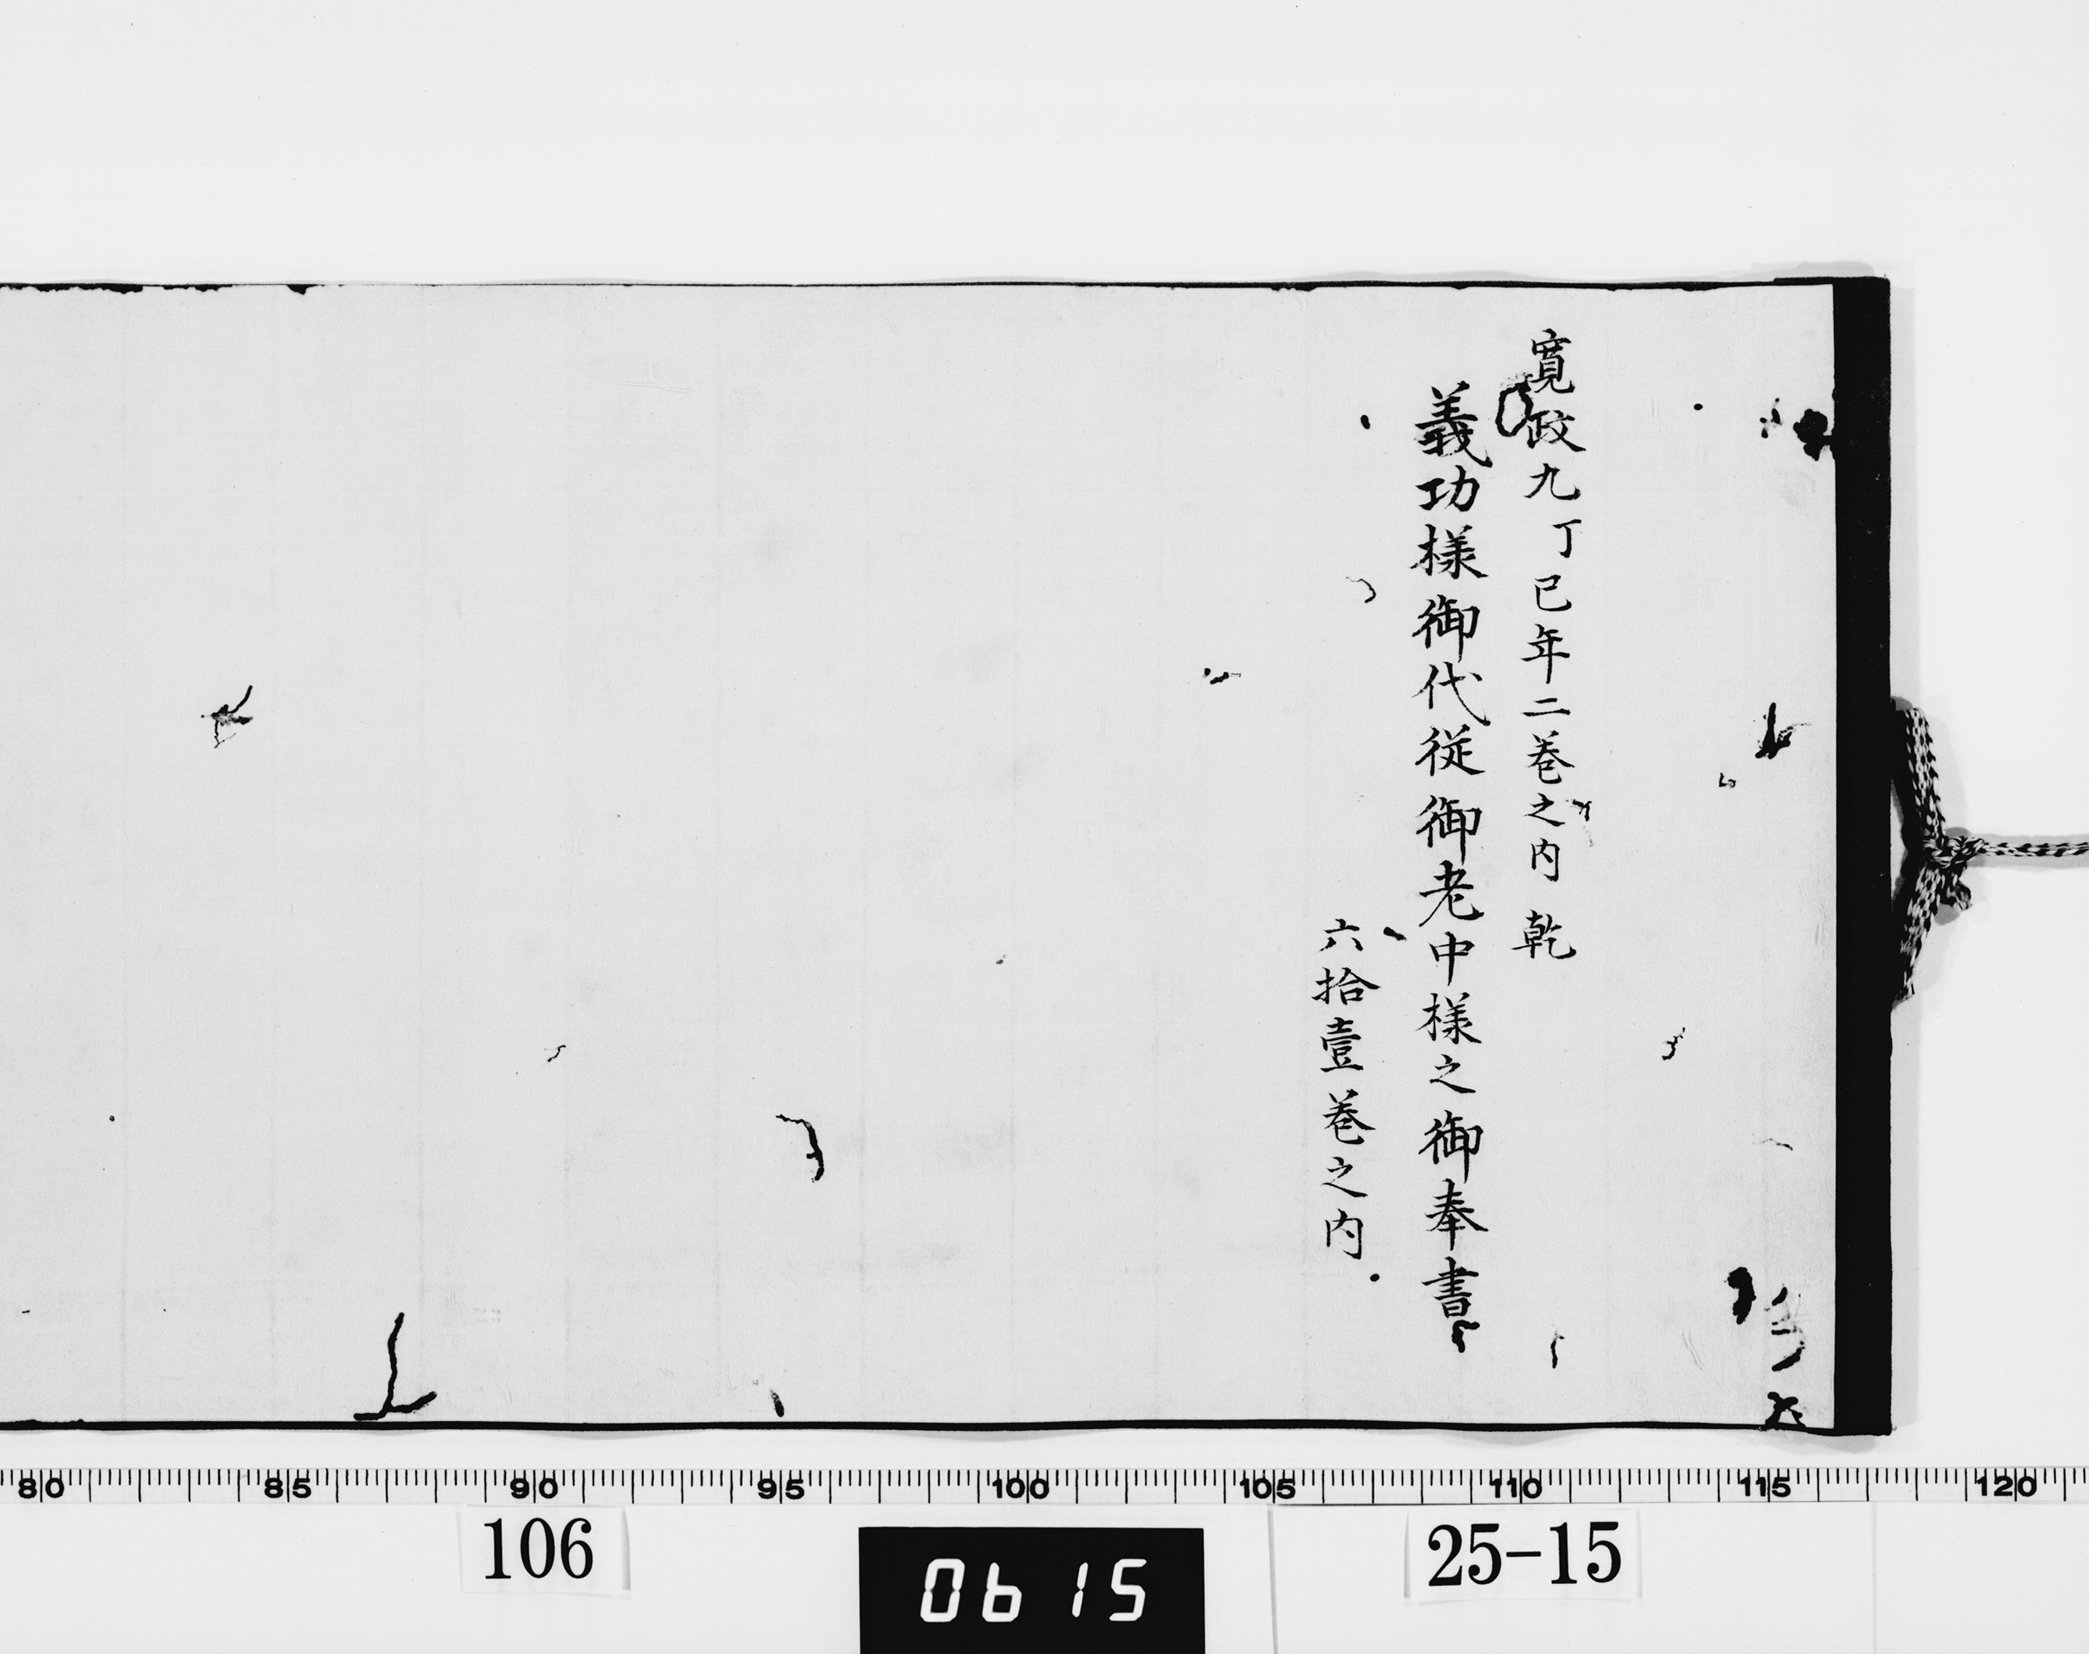 寛政九丁巳年二巻之内 乾
義功様御代従御老中様之御奉書
六拾壹巻之内
80 85 90 95 100 105 110 115 120
106
0615
25-15